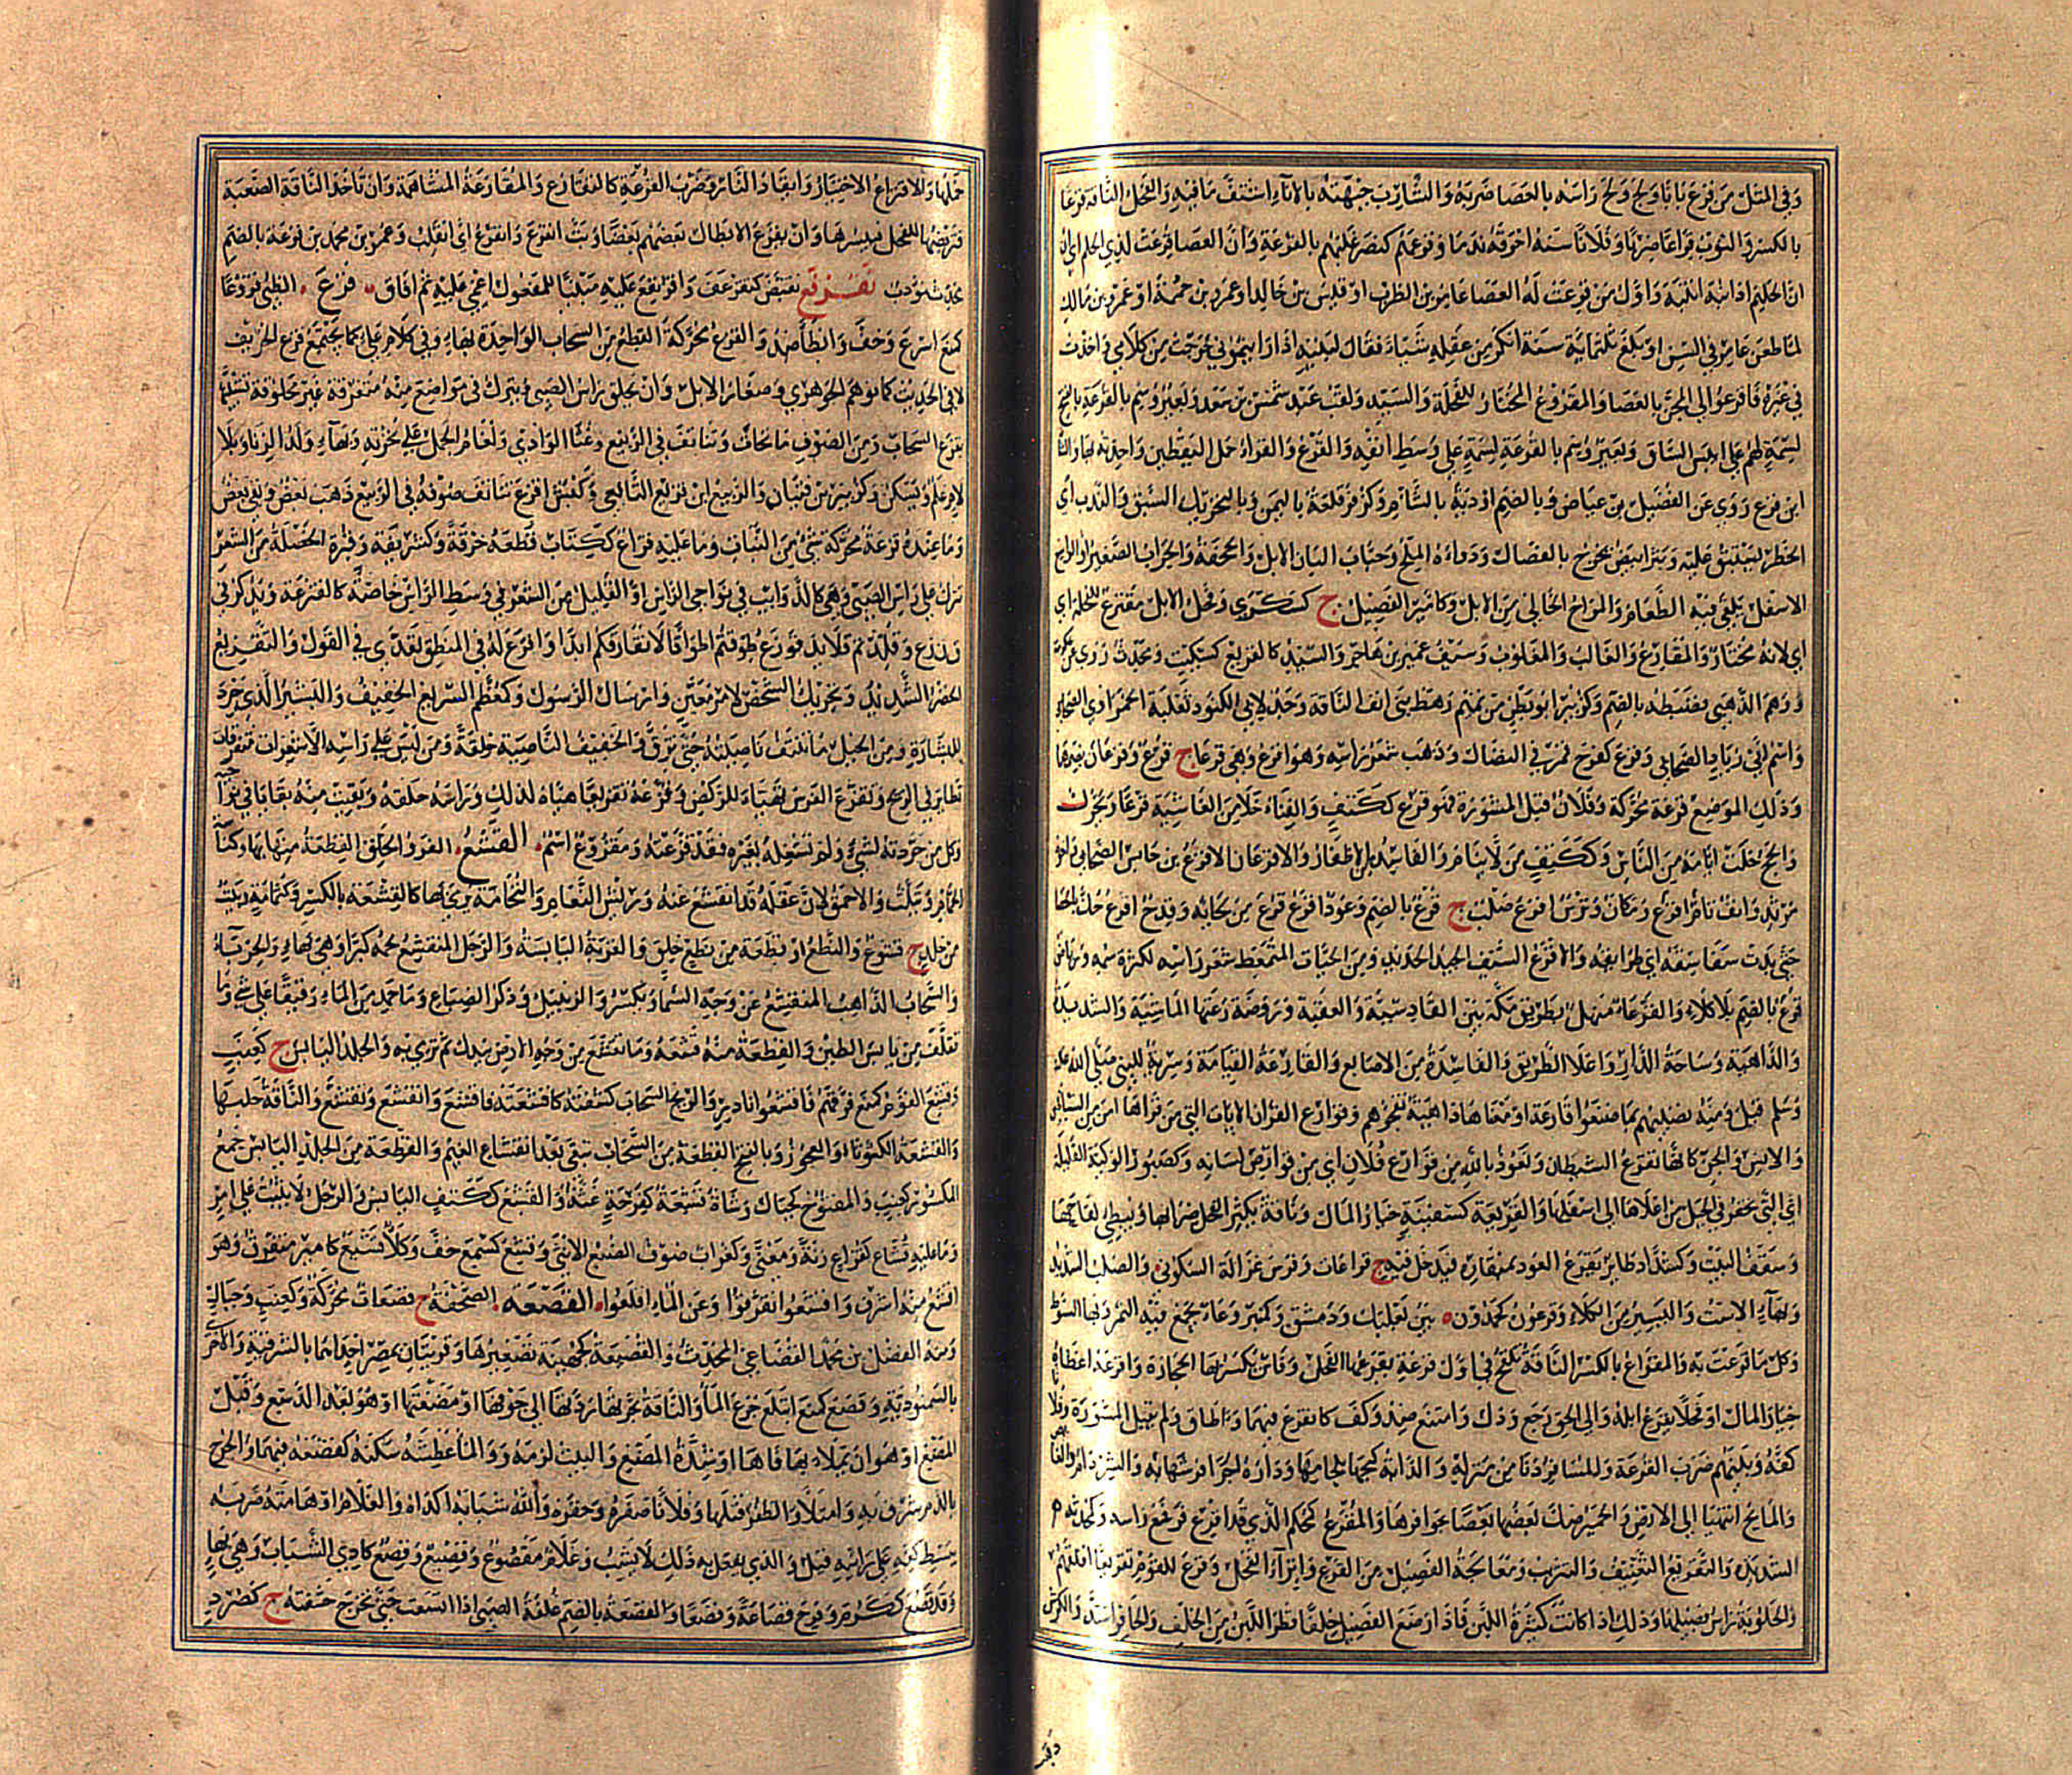 وفي المثل من قرع بابا ولج ولج راسه بالعصا ضربه والشارب جبهته بالاناء اشتف ما فيه والفحل الناقة قرعا
بالكسر والثور قراعا ضربا وفلانا سنه احرقه ندما وقرعهم كنصر غلبهم بالقرعة وان العصا قرعت لذي الحلم اي
ان الحليم اذا نبه انتبه واول من قرعت له العصا عامر بن الظرب او قيس بن خالد او عمرو بن حممة او عمرو بن مالك
لما طعن عامر في السن او بلغ ثلثماية سنة انكر من عقله شيئا فقال لبنيه اذا رايتموني خرجت من كلامي واخذت
في غيره فاقرعوا لي المجن بالعصا والمقروع المختار للفحلة والسيد ولقب عبد شمس بن سعد وبعير وسم بالقرعة بالفتح
لسمة لهم على ايبس الساق وبعير وسم بالقرعة لسمة على وسط انفه والقرع والقراء حمل اليقطين واحدته بهاء
ابن قرع روي عن الفضيل بن عياض وبالضم اودية بالشام وكزفر قلعة باليمن وبالتحريك السبق والندب اي
الخطر يستبق عليه وبثر ابيض يخرج بالفصال ودواءه الملح وحباب البان الابل والحجفة والجراب الصغير او الواسع
الاسفل يلقى فيه الطعام والمراح الخالي من الابل وكامير الفصيل ج كسكرى وفحل الابل مقترع للفحلة اي
اي لانه مختار والمقارع والغالب والمغلوب وسيف عميرة بن هاجر والسيد كالقريع كسكيت ومحدث روى عن عكرمة
ووهم الذهبي فضبطه بالضم وكزبير ابو بطن من تميم رهط بني انف الناقة وجد لابي الكنود ثعلبة الحمراوي الصحابي
واسم ابي زياد الصحابي وقرع كفرح قمر في النضال وذهب شعر راسه وهو اقرع وهي قرعا ج قرع وقرعان بضمهما
وذلك الموضع قرعة محركة وفلان قبل المشورة فهو قرع ككتف والفناء خلا من الغاشية قرعا ويحرك
والحج خلت ايامه من الناس وككتف من لا ينام والفاسد من الاظفار والاقرعان الاقرع بن حابس الصحابي واخوه
مرثد والف تام اقرع ومكان وترس اقرع صلب ج قرع بالضم وعود اقرع قرع من لحائه وقدح اقرع حك بالحصا
حتى بدت سفاسقه اي طرائقه والاقرع السيف الجيد الحديد ومن الحيات المتمعط شعر راسه لكثرة سمه ورياض
قرع بالضم بلا كلاء والقرعاء منهل بطريق مكة بين القادسية والعقبة وروضة رعتها الماشية والشديدة
والداهية وساحة الدار واعلا الطريق والفاسدة من الاصابع والقارعة القيامة وسرية للنبي صلى الله عليه
وسلم قيل ومنه تصيبهم بما صنعوا قارعة او معناها داهية تفجؤهم وقوارع القران الايات التي من قراها امن من الشياطين
والانس والجن كانها تقرع الشيطان ونعوذ بالله من قوارع فلان اي من قوارص لسانه وكصبور الركية القليلة
اي التي تحفر في الجبل من اعلاها الى اسفلها والقريعة كسفينة خيار المال وناقة يكثر الفحل ضرابها ويبطي لقاحها
وسقف البيت وكشداد طاير يقرع العود بمنقاره فيدخل فيه ج قراعات وفرس غزالة السكوني والصلب الشديد
وبهاء الاست واليسير من الكلاء وقرعون كحمدون ه بين بعلبك ودمشق وكمنبر وعاء يجمع فيه التمر وبها السوط
وكل ما قرعت به والمقراع بالكسر الناقة تلقح في اول قرعة يقرعها الفحل وفاس يكسر بها الحجارة واقرعه اعطاه
خيار المال او فحلا يقرع ابله والى الحق رجع وذل وامتنع ضد وكف كانقرع فيهما واطاق ولم يقبل المشورة وفلانا
كفه وبينهم ضرب القرعة والمسافر دنا من منزله والدابة كبحها بلجامها وداره اجرا فرشها به والشر دام والغايص
والمايح انتهيا الى الارض والحمير صك بعضها بعضا بحوافرها والمقرع كمحكم الذي قد اقرع فرفع راسه وكمحدثة
الشديدة والتقريع التعنيف والتثريب ومعالجة الفصيل من القرع وانزاء الفحل وقرع للقوم تقريعا اقلقهم
والحلوبة راس فصيلها وذلك اذا كانت كثيرة اللبن فاذا رضع الفصيل خلفا قطر اللبن من الخلف والحافر اشتد والكرش
وقبـ
حملها والاقتراع الاختيار وايقاد النار وضرب القرعة كالتقارع والمقارعة المساهمة وان تاخذ الناقة الصعبة
فتربضها للفحل فيبسرها وان يقرع الابطال بعضهم بعضا وبت اتقرع وانقرع اي اتقلب وعمر بن محمد بن قرعة بالضم
محدث مؤدب تقرفع تقبض كتقرعف واقرنفع عليه مبنيا للمفعول اغمي عليه ثم افاق ه قزع ه الظبي قزوعا
كمنع اسرع وخف وابطأ ضد والقزع محركة القطع من السحاب الواحدة بهاء وفي كلام علي كما يجتمع قزع الخريف
لا في الحديث كما توهم الجوهري وصغار الابل وان يحلق راس الصبي ويترك في مواضع منه متفرقة غير محلوقة تشبيها
بقزع السحاب ومن الصوف ما تحات وتناتف في الربيع وغثا الوادي ولغام الجمل على نخرته وبهاء ولد الزنا وبلا
لام علم ويسكن وكزبير بن فتيان والربيع ابن قزيع التابعي وكبش اقزع تناتف صوفه في الربيع ذهب بعض وبقي بعض
وما عنده قزعة محركة شي من الثياب وما عليه قزاع ككتاب قطعة خرقة وكشريفة وقبرة الخصلة من الشعر
تترك على راس الصبي وهي كالذوايب في نواحي الراس او القليل من الشعر في وسط الراس خاصة كالقنزعة ويذكر في
قنزع وقلدتم قلايد قوزع طوقتم اطواقا لا تفارقكم ابدا واقزع له في المنطق تعدى في القول والتقزيع
الحضر الشديد وتجريد الشخص لامر معين وارسال الرسول وكمعظم السريع الخفيف والبشير الذي جرد
للبشارة ومن الخيل ما تنتف ناصيته حتى ترق والخفيف الناصية خلقة ومن ليس على راسه الا شعرات متفرقات
تطاير في الريح وتقزع الفرس تهيأ للركض وقزعه تقزيعا هياه لذلك وراسه حلقه وبقيت منه بقايا في نواحيه
وكل من جردته لشي ولم تشغله بغيره فقد قزعته ومقزوع اسم ه القشع ه الفرو الخلق القطعة منها بهاء وكناسة
الحمام ويثلث والاحمق لان عقله قد انقشع عنه وريش النعام والنخامة يرمى بها كالقشعة بالكسر وكثمامة وبيت
من جلد ج قشوع والنطع او قطعة من نطع خلق والقربة اليابسة والرجل المنقشع لحمه كبرا وهي بهاء والحرباء
والسحاب الذاهب المنقشع عن وجه السما ويكسر والزنبيل وذكر الضباع وما جمد من الماء رقيقا على شي وما
تقلف من يابس الطين والقطعة منه قشعة وما تقتلع من وجه الارض بيدك ثم ترمي به والجلد اليابس ج كعنب
وقشع القوم كمنع فرقهم فاقشعوا نادر والريح السحاب كشفته كاقشعته فاقشع وانقشع وتقشع والناقة حلبها
والقشعة الكشوثاء والعجوز وبالفتح القطعة من السحاب تبقى بعد انقشاع الغيم والقطعة من الجلد اليابس جمع
المكسور كعنب والمفتوح كجبال وشاة قشعة كفرحة غثة والقشع ككتف اليابس والرجل لا يثبت على امر
وما عليه قشاع كقزاع زنة ومعنى وكغراب صوت الضبع الانثى وقشع كسمع خف وكلأ قشيع كامير متفرق وهو
اقشع منه اشرف واقشعوا تفرقوا وعن الماء اقلعوا ه القصعة ه الصحفة ج قصعات محركة وكعنب وجبال
ومنه الفضل بن محمد القصاعي المحدث والقصيعة كجهينة تصغيرها وقريتان بمصر احداهما بالشرقية والاخرى
بالسمنودية وقصع كمنع ابتلع جرع الماء والناقة بجرتها ردتها الى جوفها او مضغتها او هو بعد الدسع وقبل
المضغ او هو ان تملاء بها فاها او شدة المضغ والبيت لزمه والماء عطشه سكنه كقصعه فيهما والجرح
بالدم شرق به وامتلأ والظفر قتلها وفلانا صغره وحقره والله شبابه اكداه والغلام او هامته ضربه
ببسط كفه على راسه قيل والذي يفعل به ذلك لا يشب وغلام مقصوع وقصيع وقصع كادي الشباب وهي بهاء
وقد قصع ككرم وفرح قصاعة وقصعا والقصعة بالضم غلفة الصبي اذا اتسعت حتى تخرج حشفته ج كصرد